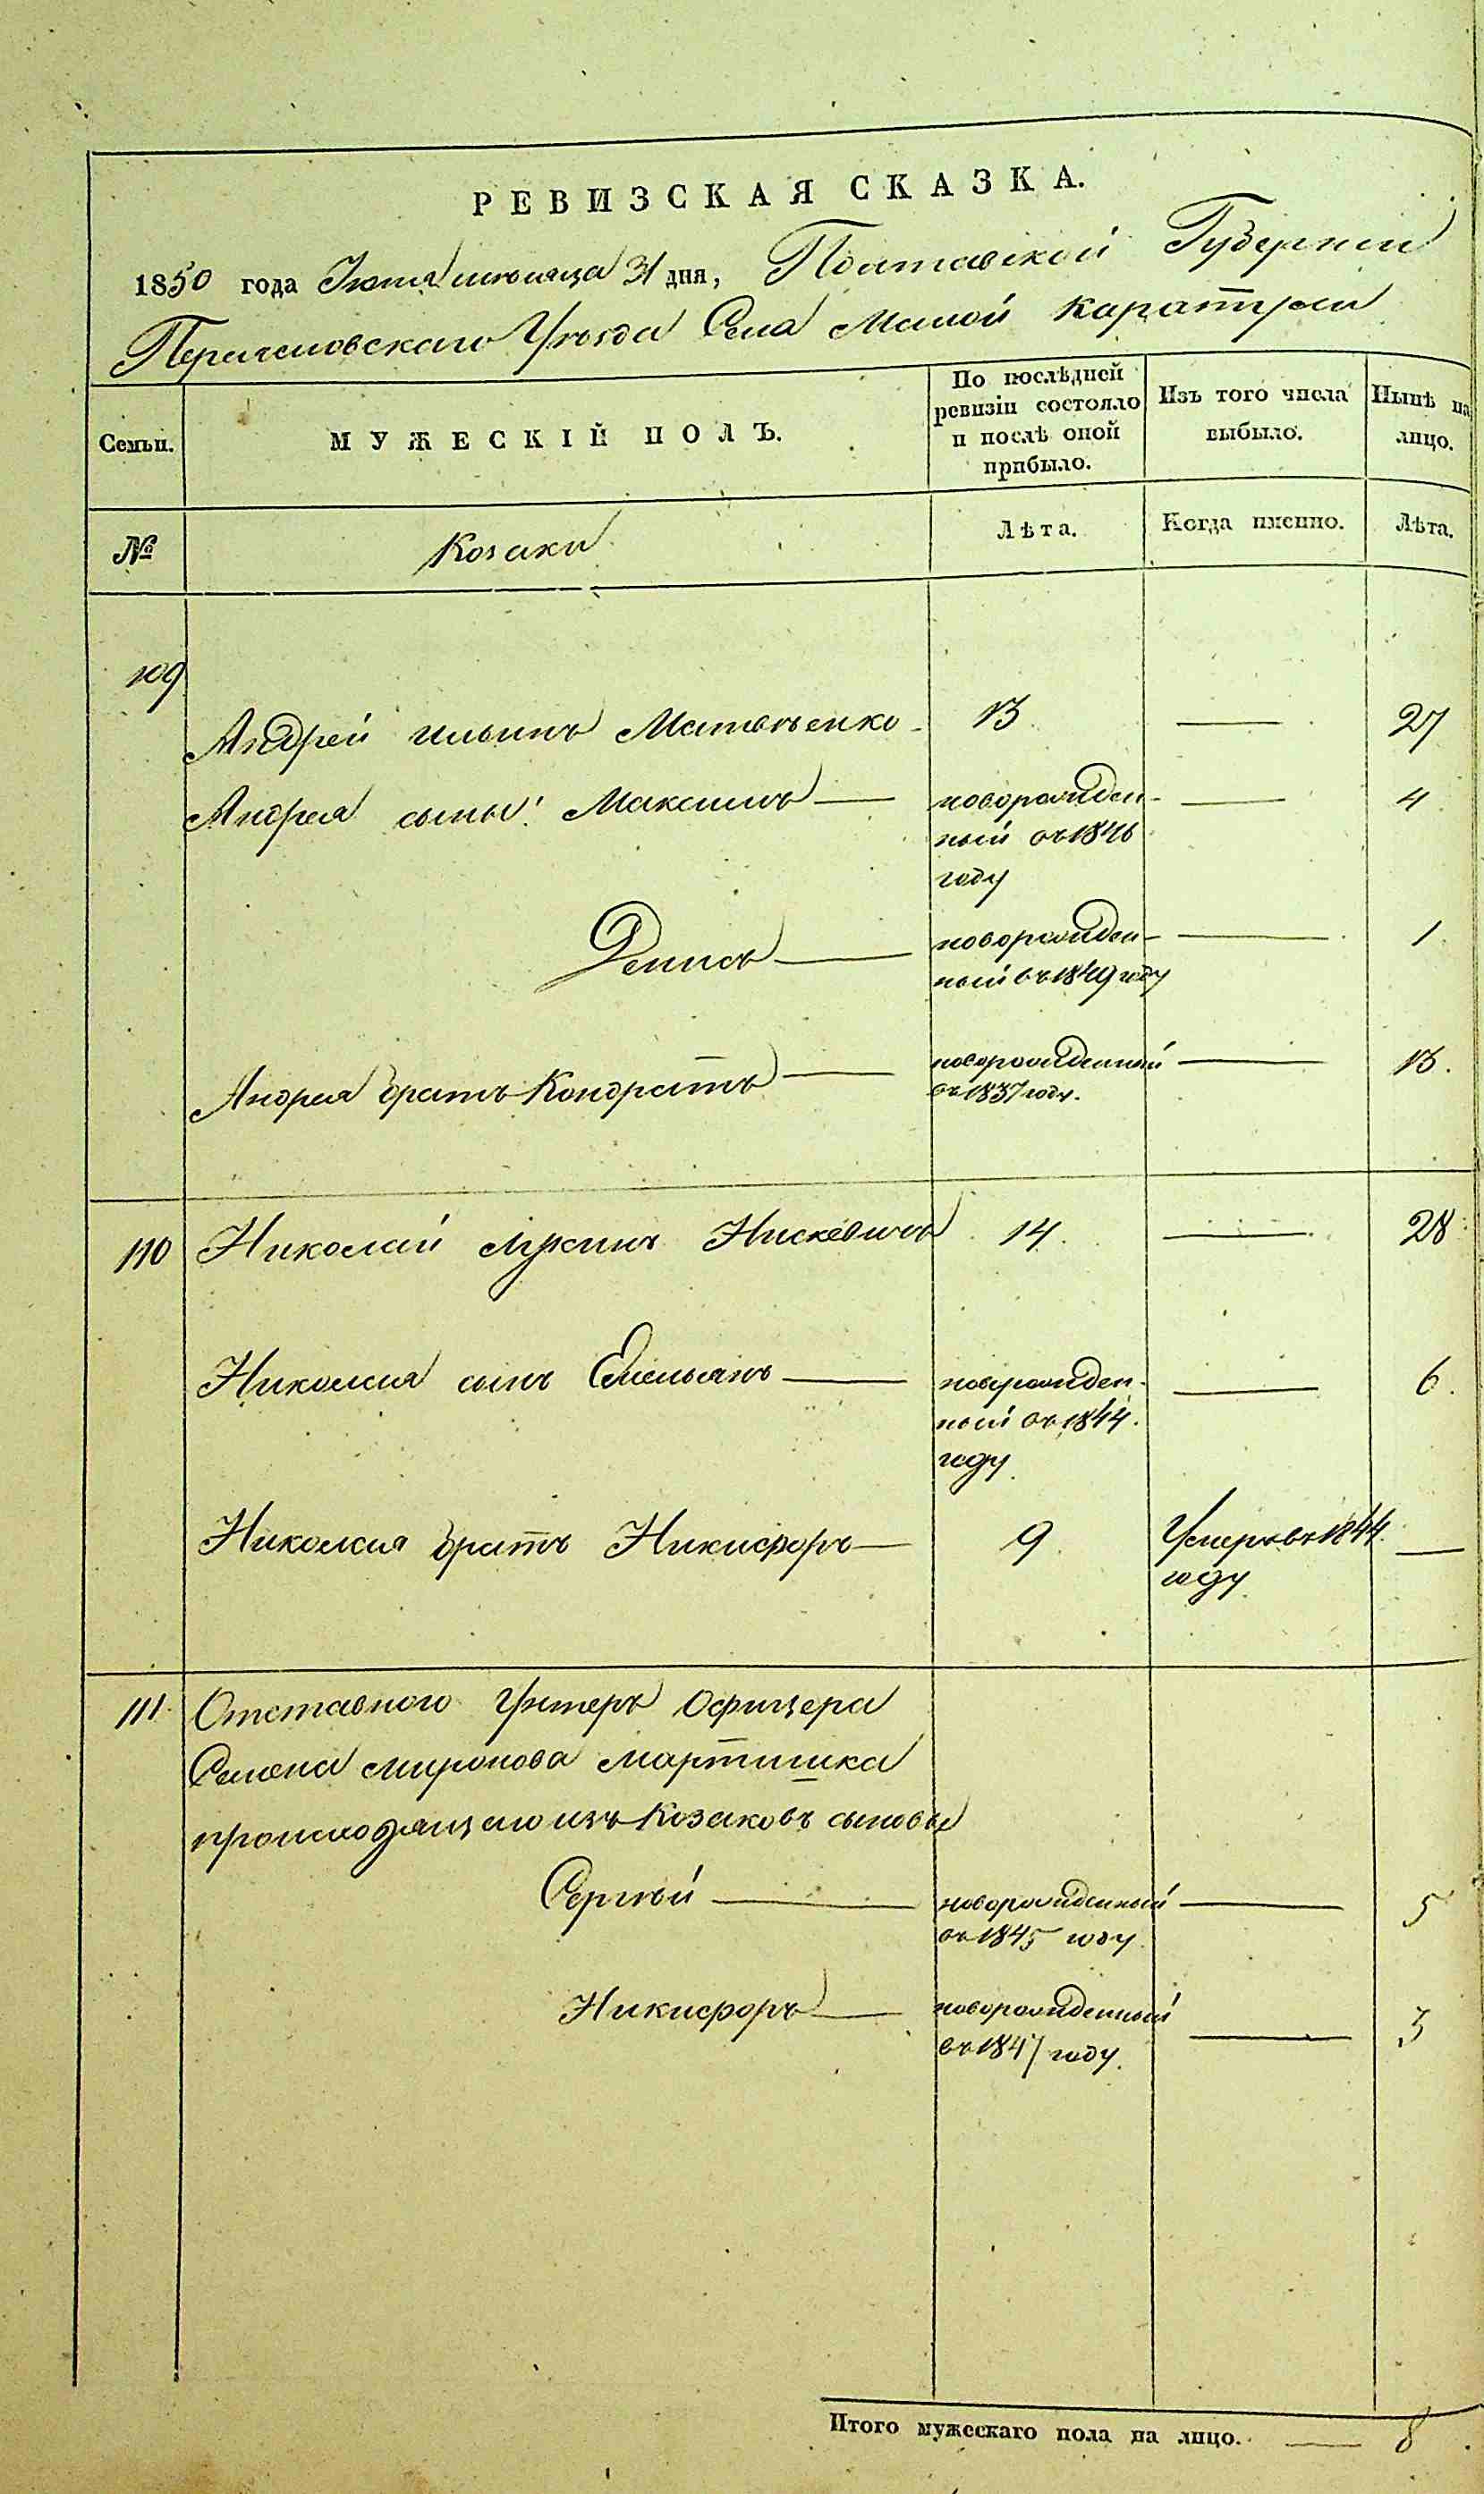 РЕВИЗСКАЯ СКАЗКА.
1850 года Июля мѣсяца 31 дня, Полтавской Губерніи
Переясловскаго Уѣзда Села Малой Каратули
Семьи.
МУЖЕСКІЙ ПОЛЪ.
По послѣдней ревизіи состояло и послѣ оной прибыло.
Изъ того числа выбыло.
Нынѣ на лицо.
№
Козаки
Лѣта.
Когда именно.
Лѣта.
109
Андрей Ильинъ Матвѣенко 13 — 27
Андрея сыны: Максимъ — новорожден- — 4
ный въ 1846
году
Денисъ — новорожден- — 1
ный въ 1849 году
Андрея братъ Кондратъ — новорожденный — 13.
въ 1837 году.
110 Николай Лукинъ Нискевичъ 14. — 28
Николая сынъ Емельянъ — новорожден- — 6.
ный въ 1844.
году
Николая братъ Никифоръ — 9 Умеръ въ 1844. —
году
111. Отставного Унтеръ Офицера
Семена Миронова Мартишка
происходящаго изъ Козаковъ сыновья
Сергѣй — новорожденный — 5
въ 1845 году.
Никифоръ — новорожденный — 3
въ 1847 году.
Итого мужескаго пола на лицо. — 8